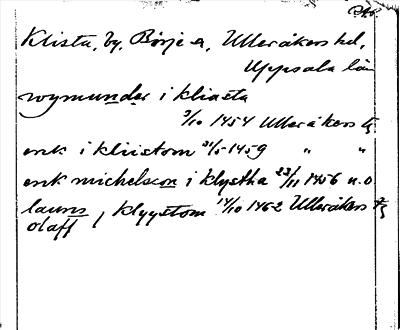 Klista, by, Börje sn, Ulleråkers hd,
Uppsala län
wymunder i kliasta
3/10 1454 Ulleråkers tg
erik i kliistom 31/5 1459 " "
erik michelsson i klystha 23/11 1456 u.o.
laurus i klyystom 14/10 1462 Ulleråkers tg
olaff